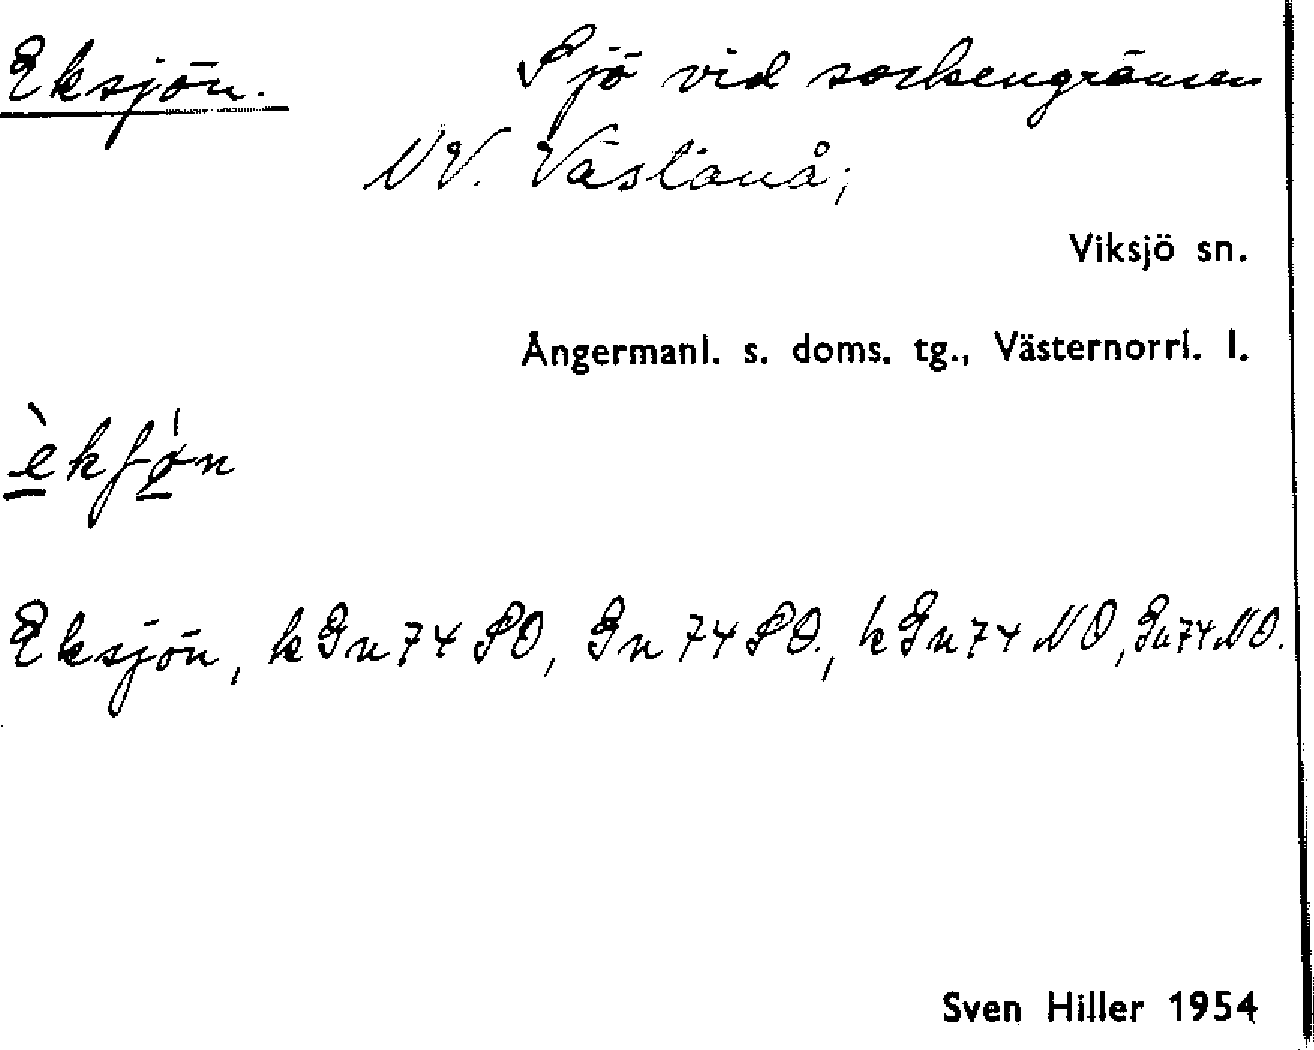 Eksjön. Sjö vid sockengränsen
NV. Västanå;
Viksjö sn.
Ångermanl. s. doms. tg., Västernorrl. l.
èkʃǿn
Eksjön, k Gn 74 SO, Gn 74 SO., k Gn 74 NO, Gn 74 NO.
Sven Hiller 1954